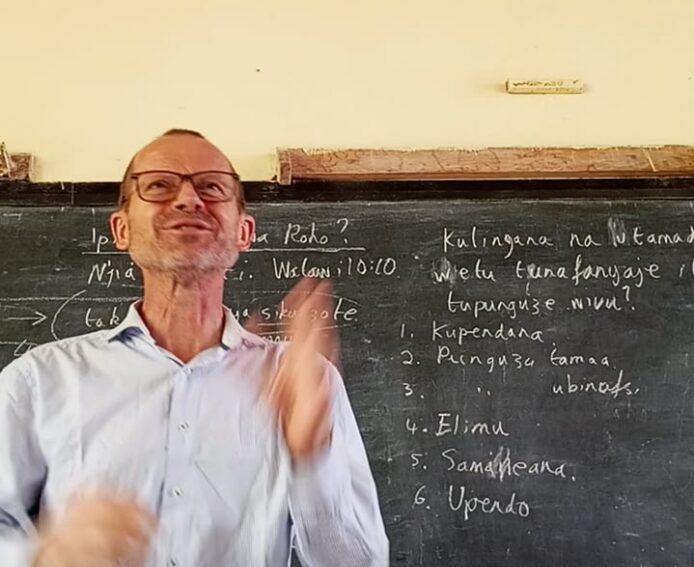 Roho?
Njia Walawi 10:10
siku zote
Kulingana na Utamad
wetu tunafanyaje i
tupunguze wivu?
1. Kupendana
2. Punguza tamaa
3. " ubinafs.
4. Elimu
5. Samaheana.
6. Upendo